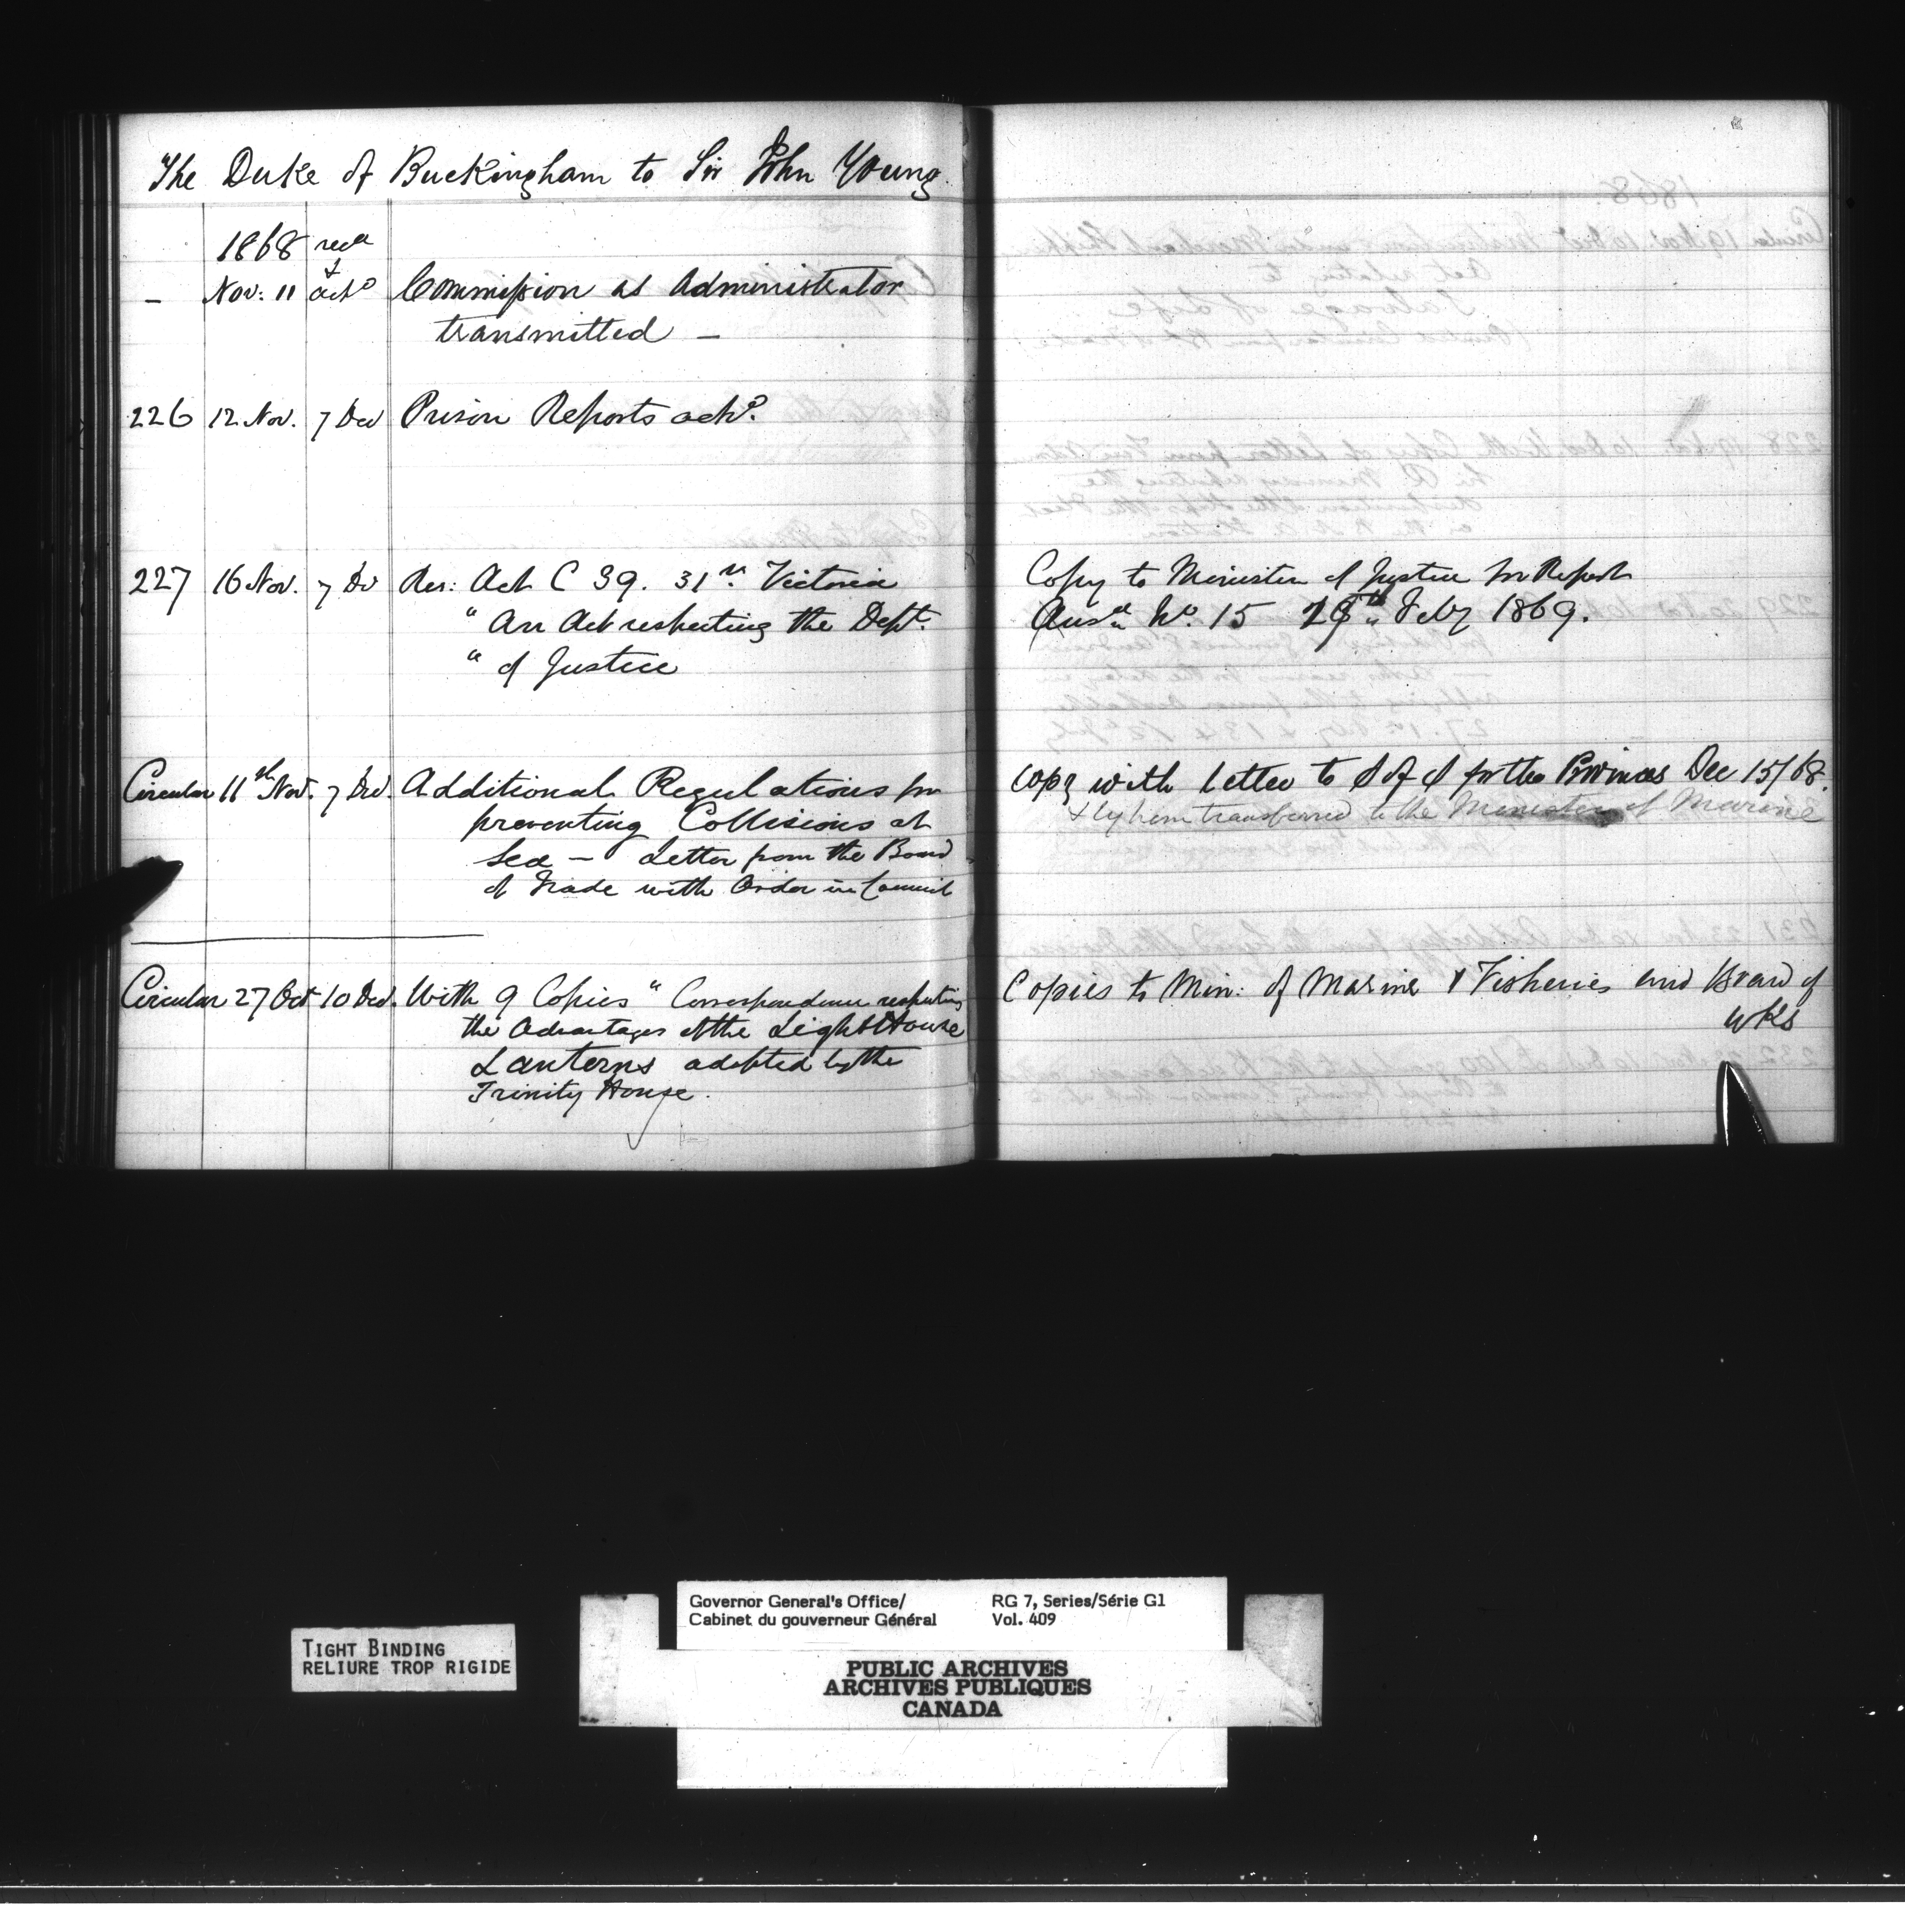 The Duke of Buckingham to Sir John Young.
1868 recd
&
– Nov: 11 ackd Commission as Administrator
transmitted –
226 12 Nov. 7 Dec Prison Reports ackd.
227 16 Nov. 7 De Res: Act C 39. 31st Victoria
" An Act respecting the Dept.
" of Justice
Copy to Minister of Justice for Report
Ansd No. 15 Feby 1869.
Circular 11th Nov. 7 Dec. Additional Regulations for
preventing Collisions at
Sea – Letter from the Board
of Trade with Order in Council
Copy with letter to S of S for the Provinces Dec 15/68.
& by him transferred to the Minister of Marine
Circular 27 Oct 10 Decr. With 9 Copies " Correspondence respecting
the Advantages of the Light House
Lanterns adopted by the
Trinity House.
Copies to Min: of Marine & Fisheries and Board of
Wks
Governor General's Office/
Cabinet du gouverneur Général
RG 7, Series/Série G1
Vol. 409
TIGHT BINDING
RELIURE TROP RIGIDE
PUBLIC ARCHIVES
ARCHIVES PUBLIQUES
CANADA